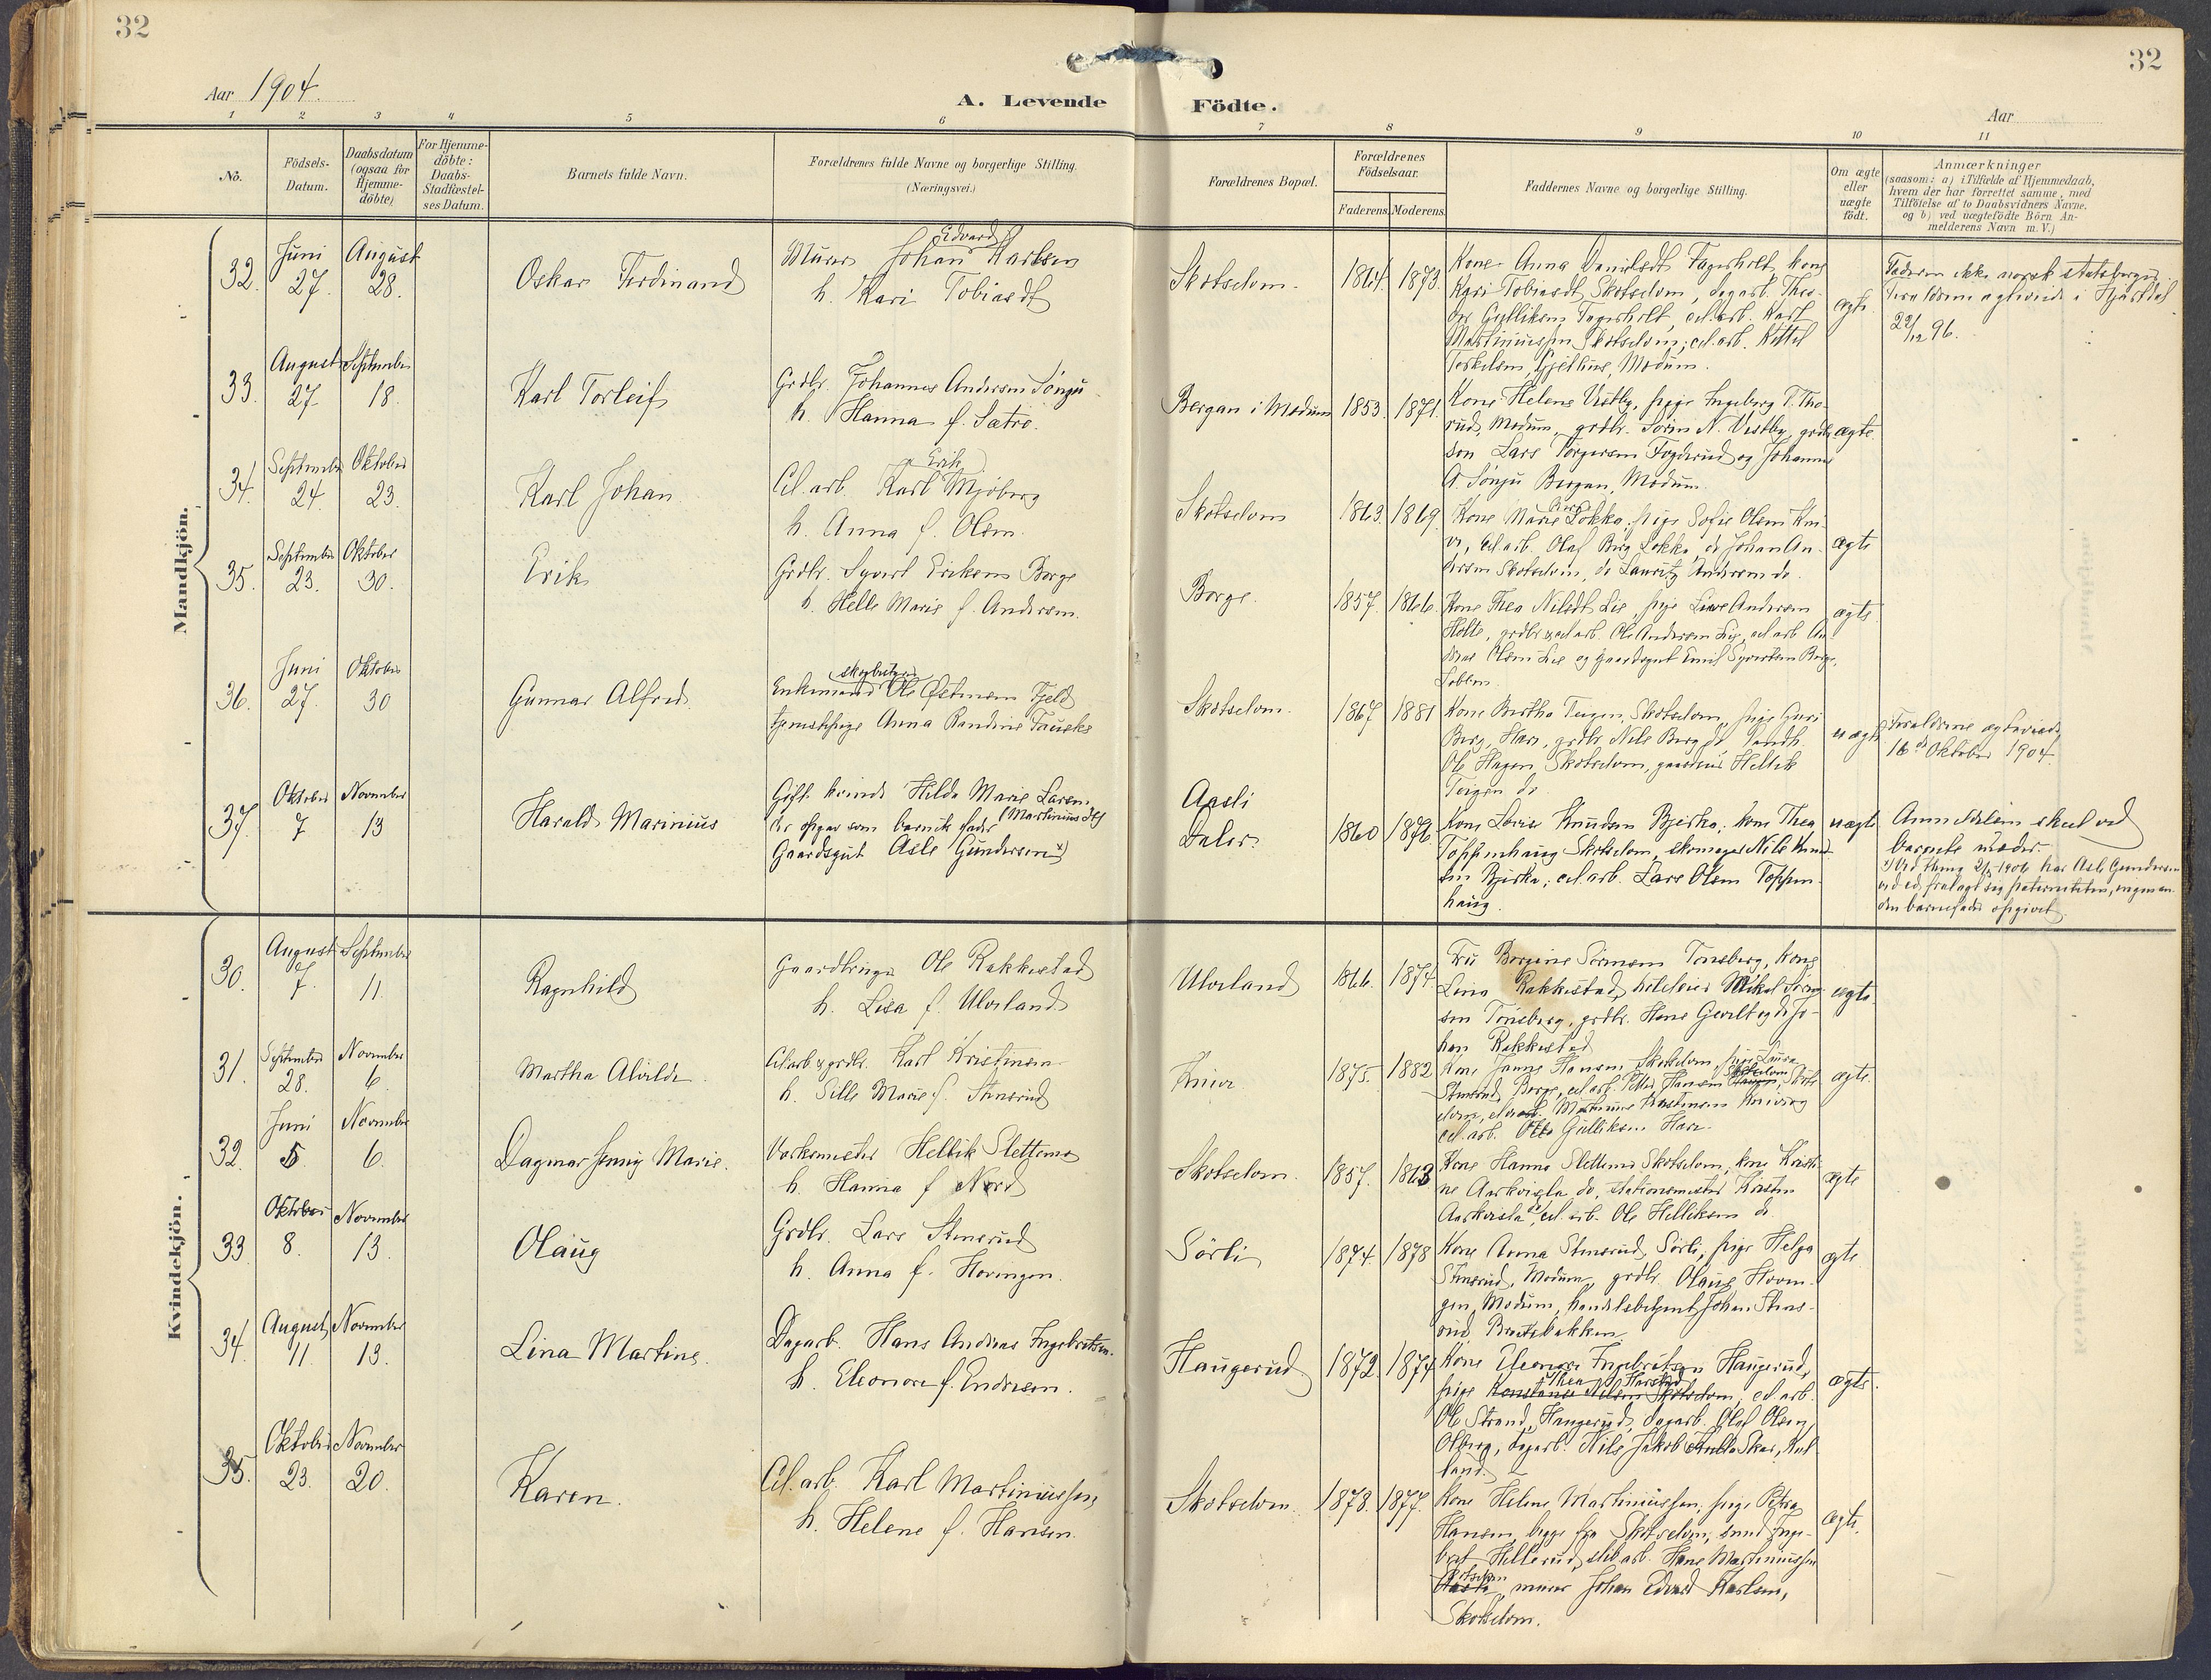 32
32
Aar 1904.
A. Levende
Födte.
Aar
1 2 3 4 5 6 7 8 9 10 11
No.
Födsels-
Datum.
Daabsdatum
(ogsaa for
Hjemme-
döbte)
For Hjemme-
döbte:
Daabs-
Stadfæstel-
ses Datum.
Barnets fulde Navn.
Forældrenes fulde Navne og borgerlige Stilling.
(Næringsvei.)
Forældrenes Bopæl.
Forældrenes
Födselsaar.
Faderens. Moderens.
Faddernes Navne og borgerlige Stilling.
Om ægte
eller
uægte
födt.
Anmærkninger
(saasom: a) i Tilfælde af Hjemmedaab,
hvem der har forrettet samme, med
Tilföielse af to Daabsvidners Navne.
og b) ved uægtefödte Börn An-
melderens Navn m. V.)
Mandkjön.
32. Juni 27. August 28.
Oskar Ferdinand
Edvard
Murer Johan Karlsen
h. Kari Tobiasdt
Skotselven. 1864. 1873.
Kone Anna Danielsdt Fagerholt, kone
Kari Tobiasdt Skotselven, dagarb. Theo-
dor Gulliksen Fagerholt, cel.arb. Karl
Martiniussen Skotselven, cel.arb. Kittel
Torkelsen, Gjethus, Modum.
ægte
Faderen ikke norsk statsborger.
Forældrene ægteviede i Hjartdal
29/12 96.
33. August 27. September 18.
Karl Torleif
Grdbr. Johannes Andersen Sönju
h. Hanna f. Sætre.
Bergan i Modum 1853. 1871.
Kone Helene Vestby, pige Ingeborg T. Tho-
rud, Modum, grdbr. Sören N. Vestby, grdbr
sön Lars Torgersen Fogderud og Johannes
A. Sönju Bergan, Modum.
ægte
34. September 24. Oktober 23.
Karl Johan
Erik
Cel.arb. Karl Mjöberg
h. Anna f. Olsen.
Skotselven 1863. 1869.
Kone Marie Berg Lökka, pige Sofie Olsen Kni-
ve, cel.arb. Olaf Berg Lökka, do Johan An-
dersen Skotselven, do Lauritz Andersen do.
ægte
35. September 23. Oktober 30.
Erik
Grdbr. Syvert Eriksen Borge
h. Helle Marie f. Andersen.
Borge. 1857. 1866.
Kone Thea Nilsdt Lie, pige Live Andersen
Holte, grdbr & cel.arb. Ole Andersen Lie, cel.arb An-
dreas Olsen Lie og gaardsgut Emil Syvertsen Borge,
ægte
36. Juni 27. Oktober 30
Gunnar Alfred.
Enkemand Ole Östensen Fjeld
tjenestepige Anna Randine Fauske
Skotselven. 1867 1881
Kone Bertha Teigen, Skotselven, pige Guri
Berg, Hære, grdbr Nils Berg do, landh.
Ole Hagen Skotselven, Hellik
Teigen do
uægte
Forældrene ægteviede
16de Oktober 1904.
37. Oktober 7 November 13
Harald Marinius
Gift kvinde Hilda Marie Larsen.
der opgav som barnefader (Martinius
Gaardsgut Asle Gundersen x)
Aasli
Daler. 1860 1876.
Kone Lovise Knudsen Bjerke, kone Thea
Toppenhaug Skotselven, skomager Nils Knud-
sen Bjerke, cel.arb. Lars Olsen Toppen-
haug.
uægte
Anmeldelsen skeet ved
barnets moder.
x) Ved thing 2/5 1906 har Asle Gundersen
ved ed fralagt sig paterniteten, ingen an-
den barnefader opgivet.
Kvindekjön.
30. August 7. September 11.
Ragnhild
Gaardbruger Ole Rakkestad
h. Lisa f. Ulveland
Ulveland 1866. 1874.
Fru Bergine Sörensen Tönsberg, kone
Lina Rakkestad, hoteleier Mikal Sören-
sen Tönsberg, grdbr. Hans Gevelt og do Jo-
han Rakkestad
ægte
31. September 28. November 6.
Martha Alvilde.
Cel.arb & grdbr. Karl Kristensen
h. Sille Marie f. Stensrud
Knive 1875. 1882
Kone Janna Hansen Skotselven, pige Laura
Stensrud, Borge, cel.arb. Petter Hansen Skots-
elven, Martinius Kristensen Knive og
cel.arb. Otto Gulliksen Hære.
ægte.
32. Juni 5 November 6.
Dagmar Jenny Marie.
Værksmester Hellik Slettemo
h. Hanna f Nord
Skotselven. 1857. 1863
Kone Hanna Slettemo Skotselven, kone Kristi-
ne Aarkvisla do, stationsmester Kristen
Aarkvisla do, cel.arb. Ole Helliksen do
ægte
33 Oktober 8. November 13.
Olaug
Grdbr. Lars Stensrud
h. Anna f. Hovingen.
Sörli 1874. 1878
Kone Anna Stensrud, Sörli, pige Helga
Stensrud, Modum, grdbr. Olaus Hovin-
gen, Modum, handelsbetjent Johan Stens-
rud Bratsbakken.
ægte
34. August 11. November 13.
Lina Martine.
Dagarb. Hans Andreas Ingebretsen.
h. Eleonore f. Endresen.
Haugerud 1872. 1874
Kone Eleonore Ingebretsen Haugerud,
Thea Harstad
pige Konstanse Nilsen Skotselven, cel.arb.
Ole Strand, Haugerud, dagarb. Olaf Olsen,
Olberg, dagarb. Nils Jakob
land.
ægte.
35. Oktober 23. November 20.
Karen.
Cel.arb. Karl Martiniussen
h. Helene f. Hansen.
Skotselven. 1878. 1877.
Kone Helene Martiniussen, pige Petra
Hansen, begge fra Skotselven, smed Inge-
bret Hellerud, Hans Martiniussen
Skotselven
murer Johan Edvard Karlsen,
Skotselven.
ægte.